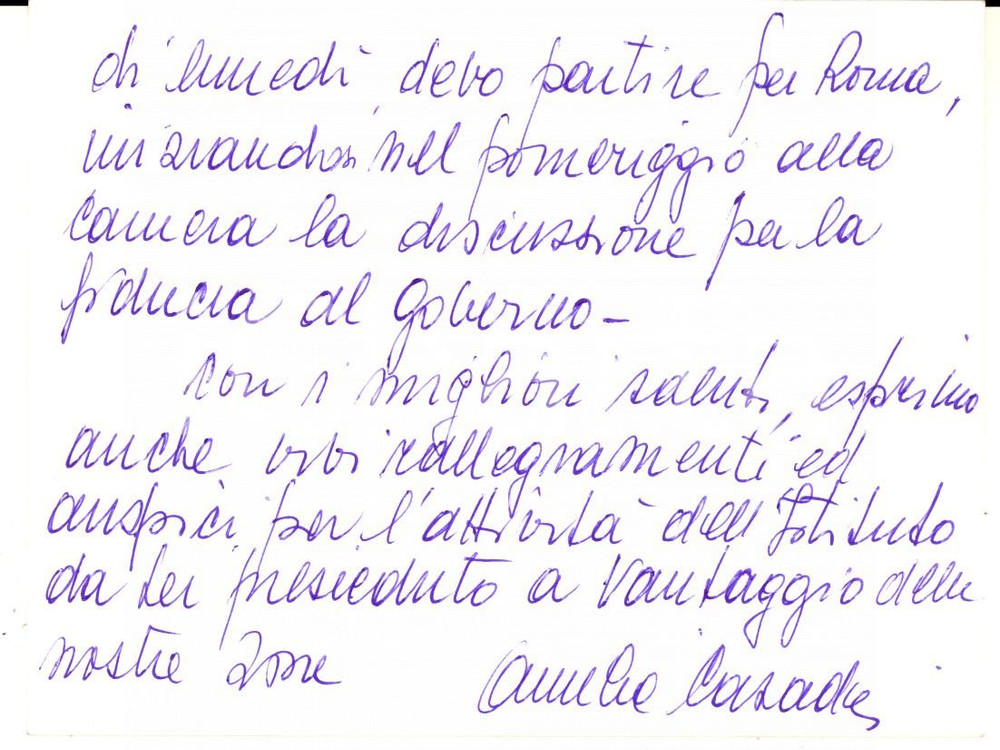 di lunedì, devo partire per Roma,
iniziandosi nel pomeriggio alla
Camera la discussione per la
fiducia al Governo –
Con i migliori saluti, esprimo
anche vivi rallegramenti ed
auspici per l'attività dell'Istituto
da Lei presieduto a vantaggio delle
nostre zone Amelio Casadei